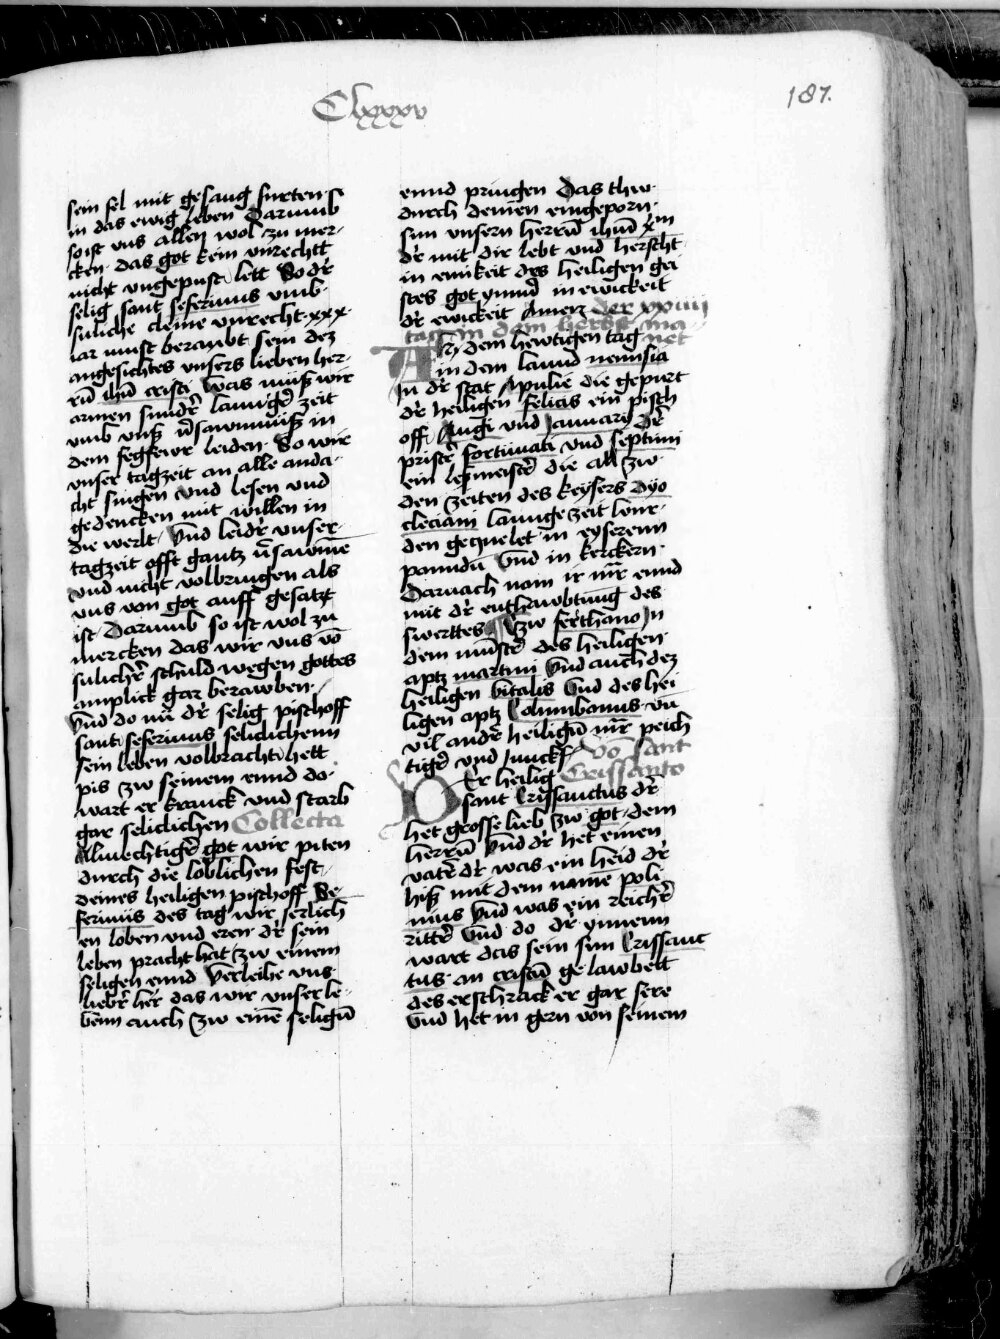 Clxxxv
187.
sein sel mit gesang furten
in das ewig leben Darumb
so ist vns allen wol zu mer-
cken das got kein vnrecht
nicht vngepust lett So dr̃
selig sant seferinus vmb
suliche cleine vnrecht xxx
iar must beraubt sein dez
angesichtes vnsers lieben her-
rñ ihũ cristi was müß wir
armen sundr̃ lanngr̃ zeit
vmb vnß v̈sawmnüß in
dem fegfewr leiden So wir
vnser tagzeit an alle anda-
cht singen vnd lesen vnd
gedencken mit willen in
die werlt Vnd leidr̃ vnser
tagzeit offt gantz v̈sawmẽ
vnd nicht volbringen als
vns von got auff gesatzt
ist Darumb so ist wol zu
mercken das wir vns võ
sulichr̃ schuld wegen gottes
amplick gar berawben
Vnd do nũ dr̃ selig pischoff
sant seferinus seliclichenn
sein leben volbracht hett
pis zw seinem ennd do
wart er kranck vnd starb
gar seliclichen Collecta
Almechtigr̃ got wir piten
durch die loblichen fest
deines heiligen pischoff Se-
ferinus des tag wir ferlich
en loben vnd eren dr̃ sein
leben pracht hat zw einem
seligen ennd Verleihe vns
liebr̃ her das wir vnser le-
benn auch zw einẽ seligñ
ennd pringen Das thw
durch deinen eingeporn
sun vnsern herrñ ihũ xp̃m
dr̃ mit dir lebt vnd herscht
in einikeit des heiligen gei
stes got ymmd in ewickeit
dr̃ ewickeit Amen der xxiiij
tag in dem herbst ma
net
An dem hewtigen tag
in dem lannd
In dr̃ stat Apulie die gepurt
dr̃ heiligen felicis ein pisch
off Augi vnd Januarij Dr̃
pristr̃ fortunati vnd septimi
ein lesmeistr̃ die all zw
den zeiten des keysers dyo
cleciani lannge zeit
den gequelet in eyserenn
panndñ Vnd in kerckern
Darnach nom ir mr̃r ennd
mit dr̃ enthawbtung des
swerttes Zw ferthano In
dem mũstr̃ des heiligen
aptz martini Vnd auch dez
heiligen vitalis Vnd des hei
ligen aptz Columbanus vñ
vil andr̃ heiligñ mr̃r peich
tigr̃ vnd Junckf̃ Võ sant
Crissanto
DEr heilig
sant Crissanctus dr̃
het grosse lieb zw got dem
herrñ Vnd dr̃ het einen
vatr̃ dr̃ was ein heid dr̃
hiß mit dem namẽ poli
mius Vnd was ein reichr̃
rittr̃ Vnd do dr̃ ynnenn
wart das sein sun Crissanc
tus an cristũ gelawbett
des erschrack er gar sere
Vnd het in gern von seinem